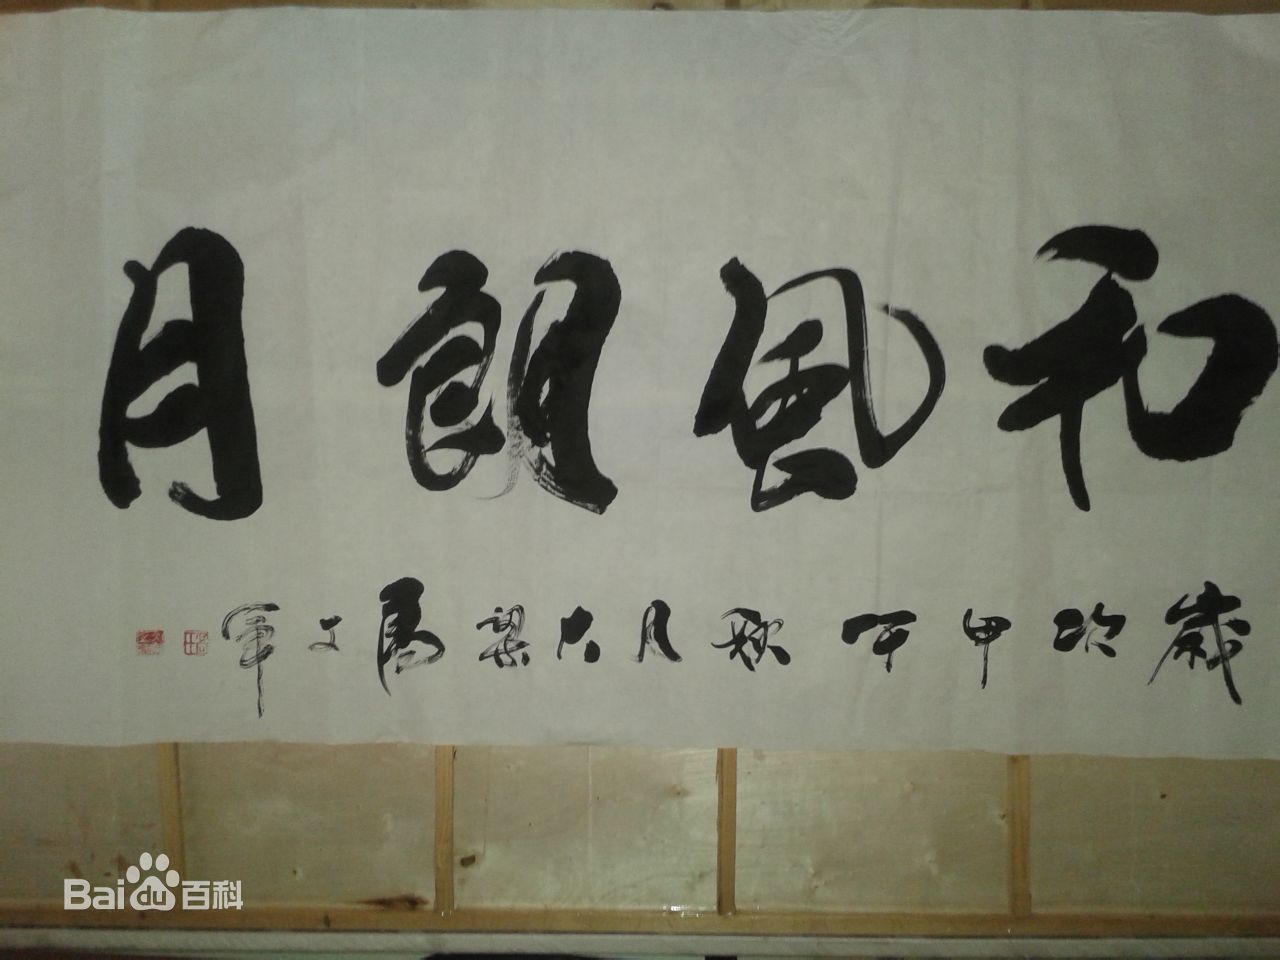 和風朗月
歲次甲午秋月大梁馬文軍
Baidu百科